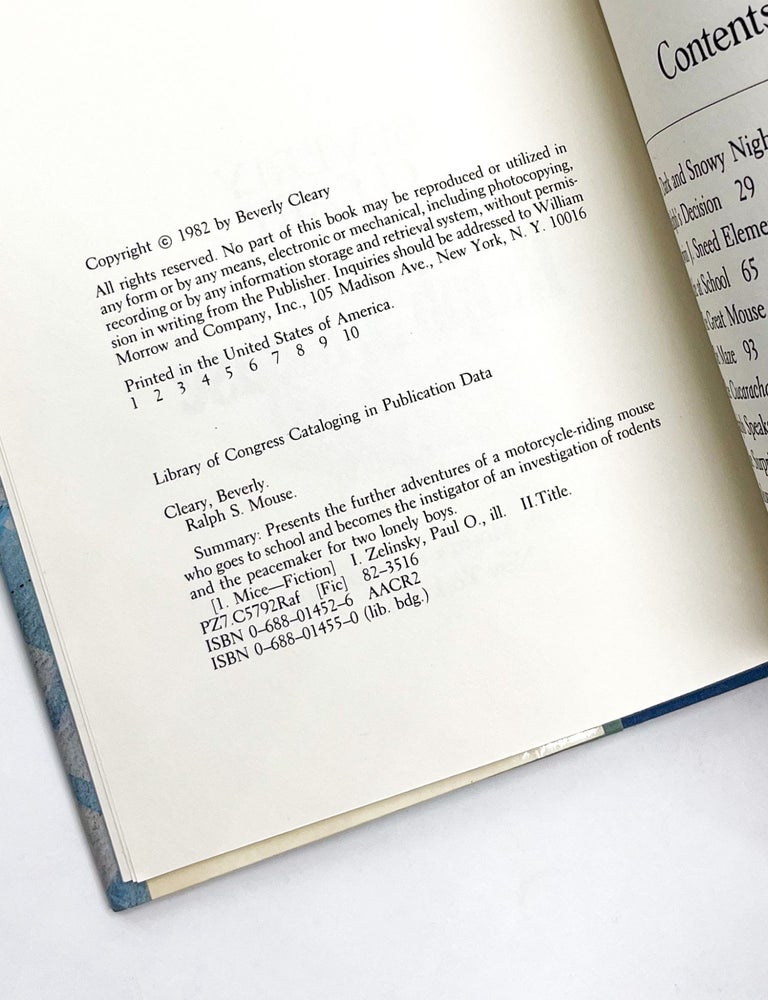 Copyright © 1982 by Beverly Cleary
All rights reserved. No part of this book may be reproduced or utilized in
any form or by any means, electronic or mechanical, including photocopying,
recording or by any information storage and retrieval system, without permis-
sion in writing from the Publisher. Inquiries should be addressed to William
Morrow and Company, Inc., 105 Madison Ave., New York, N. Y. 10016
Printed in the United States of America.
1 2 3 4 5 6 7 8 9 10
Library of Congress Cataloging in Publication Data
Cleary, Beverly.
Ralph S. Mouse.
Summary: Presents the further adventures of a motorcycle-riding mouse
who goes to school and becomes the instigator of an investigation of rodents
and the peacemaker for two lonely boys.
[1. Mice—Fiction] I. Zelinsky, Paul O., ill. II.Title.
PZ7.C5792Raf [Fic] 82–3516
ISBN 0–688–01452–6 AACR2
ISBN 0–688–01455–0 (lib. bdg.)
Contents
and Snowy Nigh
Decision 29
Sneed Eleme
at School 65
Great Mouse
Maze 93
Speaks